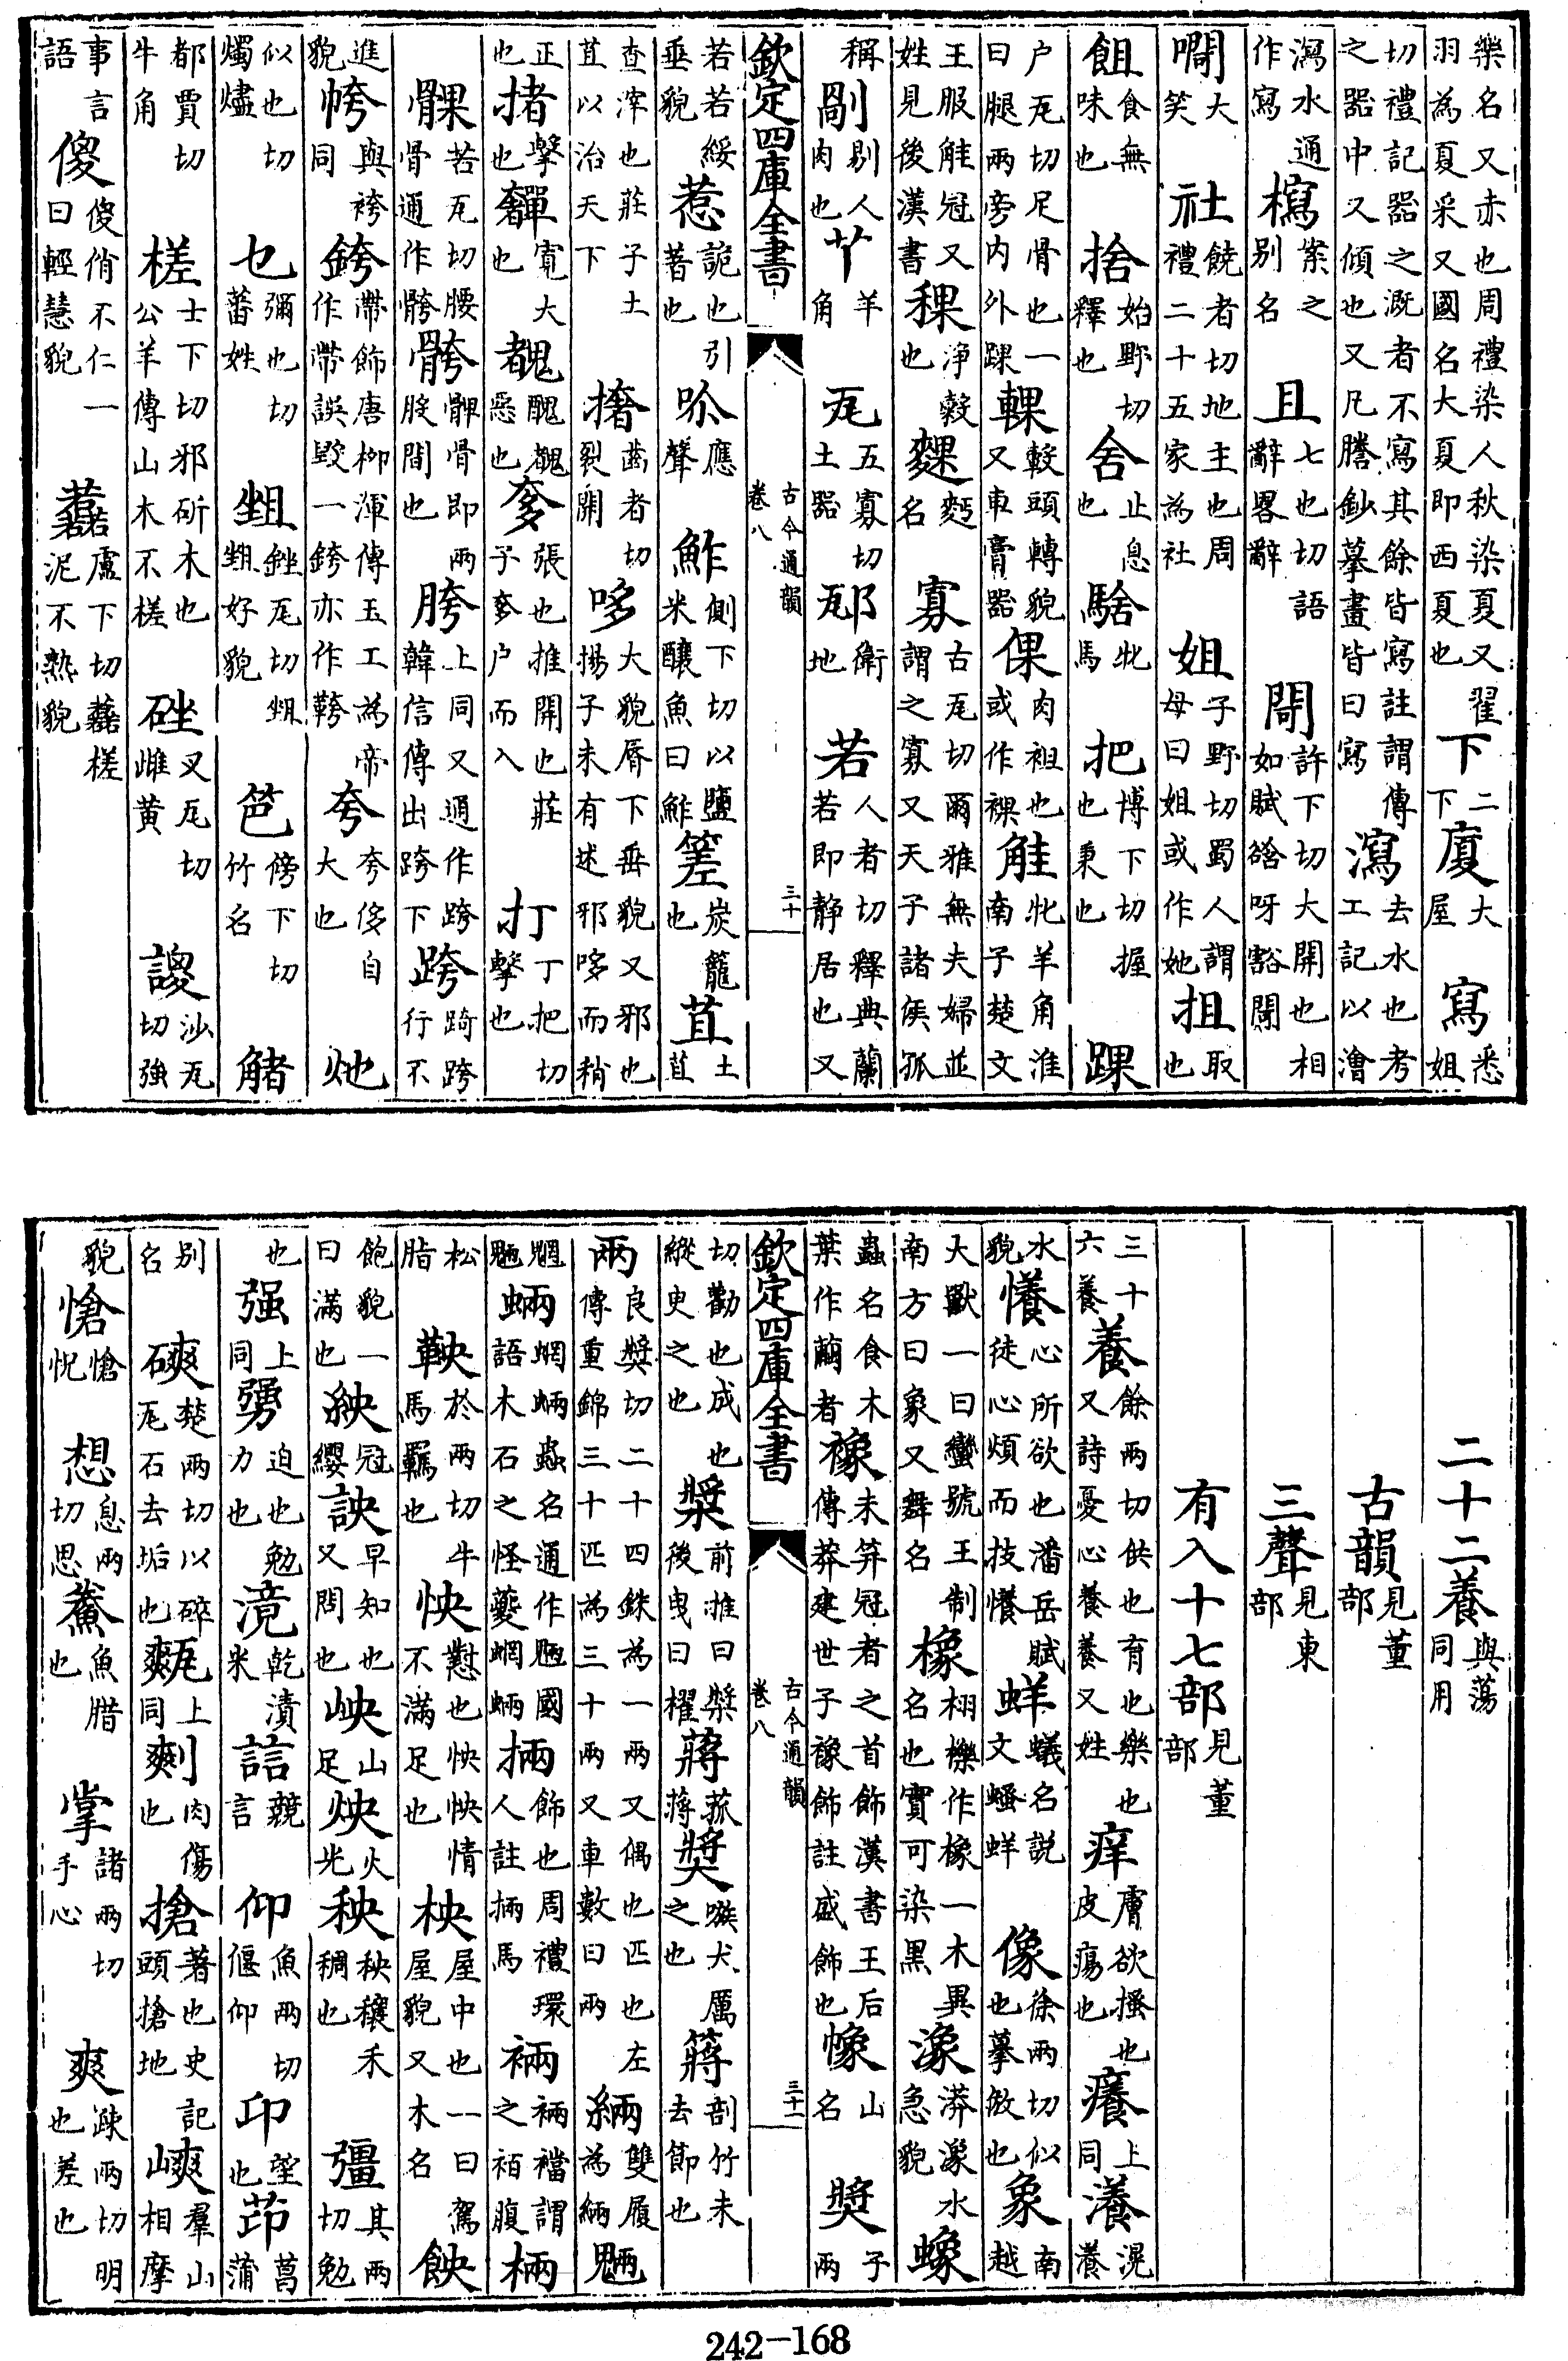 樂名又赤也周禮染人秋染夏又翟羽為夏采又國名大夏即西夏也下二下廈大屋寫悉姐
切禮記器之溉者不寫其餘皆寫註謂傳之器中又傾也又凡謄鈔摹畫皆曰寫瀉去水也考工記以澮
瀉水通作寫㵼案之别名且七也切語辭畧辭閜許下切大開也相如賦谽呀豁閜
大笑社饒者切地主也周禮二十五家為社姐子野切蜀人謂母曰姐或作她抯取也
飷食無味也捨始野切釋也舍止息也騇牝馬把博下切握也秉也踝
户瓦切足骨也一曰腿兩旁内外踝輠轂頭轉貌又車膏器倮肉袒也或作裸觟牝羊角淮南子楚文
王服觟冠又姓見後漢書稞浄穀也䴹麫名寡古瓦切爾雅無夫婦並謂之寡又天子諸侯孤
稱剮剔人肉也羊角瓦五寡切土器邷衛地若人者切釋典蘭若即静居也又
欽定四庫全書 古今通韻 卷八 三十
若若綏垂貌惹詭也引著也應聲鮓側下切以鹽米釀魚曰鮓炭籠也苴土苴
查滓也莊子土苴以治天下撦齒者切裂開哆大貌脣下垂貌又邪也揚子未有述邪哆而稍
正也擊也奲寛大也醜惡也奓張也推開也莊子奓户而入打丁把切擊也
髁苦瓦切腰骨通作骻骻髀骨即兩股間也胯上同又通作跨韓信傳出跨下跨踦跨行不
進貌與袴同銙帶飾唐柳渾傳玉工為帝作帶誤毁一銙亦作夸夸侈自大也灺
似也切燭燼乜彌也切蕃姓銼瓦切好貌笆傍下切竹名觰
都賈切牛角槎士下切邪斫木也公羊傳山木不槎硰叉瓦切雌黄謏沙瓦切強
事言語傻傻俏不仁一曰輕慧貌盧下切槎泥不熟貌
二十二養與蕩同用
古韻見董部
三聲見東部
有入十七部見董部
三十六養養餘兩切供也育也樂也又詩憂心養養又姓痒膚欲搔也皮瘍也癢上同瀁滉瀁
水貌懩心所欲也潘岳賦徒心煩而技懩蛘蟻名説文蝔蛘像徐兩切似也摹倣也象南越
大獸一曰蠻號王制南方曰象又舞名橡栩櫟作橡一木異名也實可染黑潒漭潒水急貌蟓
蟲名食木葉作繭者襐未笄冠者之首飾漢書王后傳莽建世子襐飾註盛飾也山名奬子兩
欽定四庫全書 古今通韻 卷八 三十一
切勸也成也縱臾之也槳前推曰槳後曳曰櫂蔣菰蔣奬嗾犬厲之也剖竹未去節也
兩良奬切二十四銖為一兩又偶也匹也左傳重錦三十匹為三十兩又車數曰兩緉雙履為緉魎
魍魎蜽蝄蜽蟲名通作魎國語木石之怪夔蝄蜽掚飾也周禮環人註掚馬裲裲襠謂之袹腹
松脂鞅於兩切牛馬羈也怏懟也怏怏情不滿足也柍屋中也一曰駕屋貌又木名䬬
飽貌一曰滿也紻冠纓詇早知也又問也岟山足炴火光秧秧穰禾稠也彊其兩切勉
也强上同勥迫也勉力也乾漬米誩競言仰魚兩切偃仰卬望也茚菖蒲
别名磢楚兩切以碎瓦石去垢也上同肉傷也搶著也史記頭搶地羣山相摩
貌愴愴怳想息兩切思鯗魚腊也掌諸兩切手心爽疎兩切明也差也
242-168